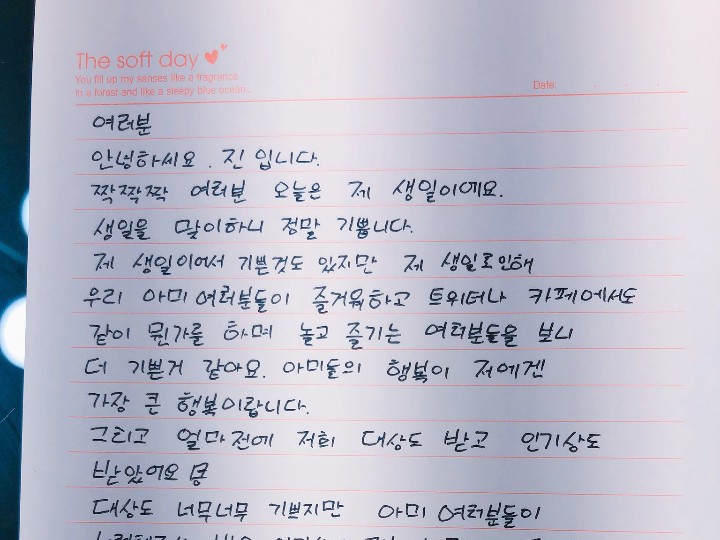 The soft day
You fill up my senses like a fragrance
in a forest and like a sleepy blue ocean..
Date:
여러분
안녕하세요. 진 입니다.
짝짝짝 여러분 오늘은 제 생일이에요.
생일을 맞이하니 정말 기쁩니다.
제 생일이어서 기쁜것도 있지만 제 생일로인해
우리 아미 여러분들이 즐거워하고 트위터나 카페에서도
같이 뭔가를 하며 놀고 즐기는 여러분들을 보니
더 기쁜거 같아요. 아미들의 행복이 저에겐
가장 큰 행복이랍니다.
그리고 얼마전에 저희 대상도 받고 인기상도
받았어요
대상도 너무너무 기쁘지만 아미 여러분들이